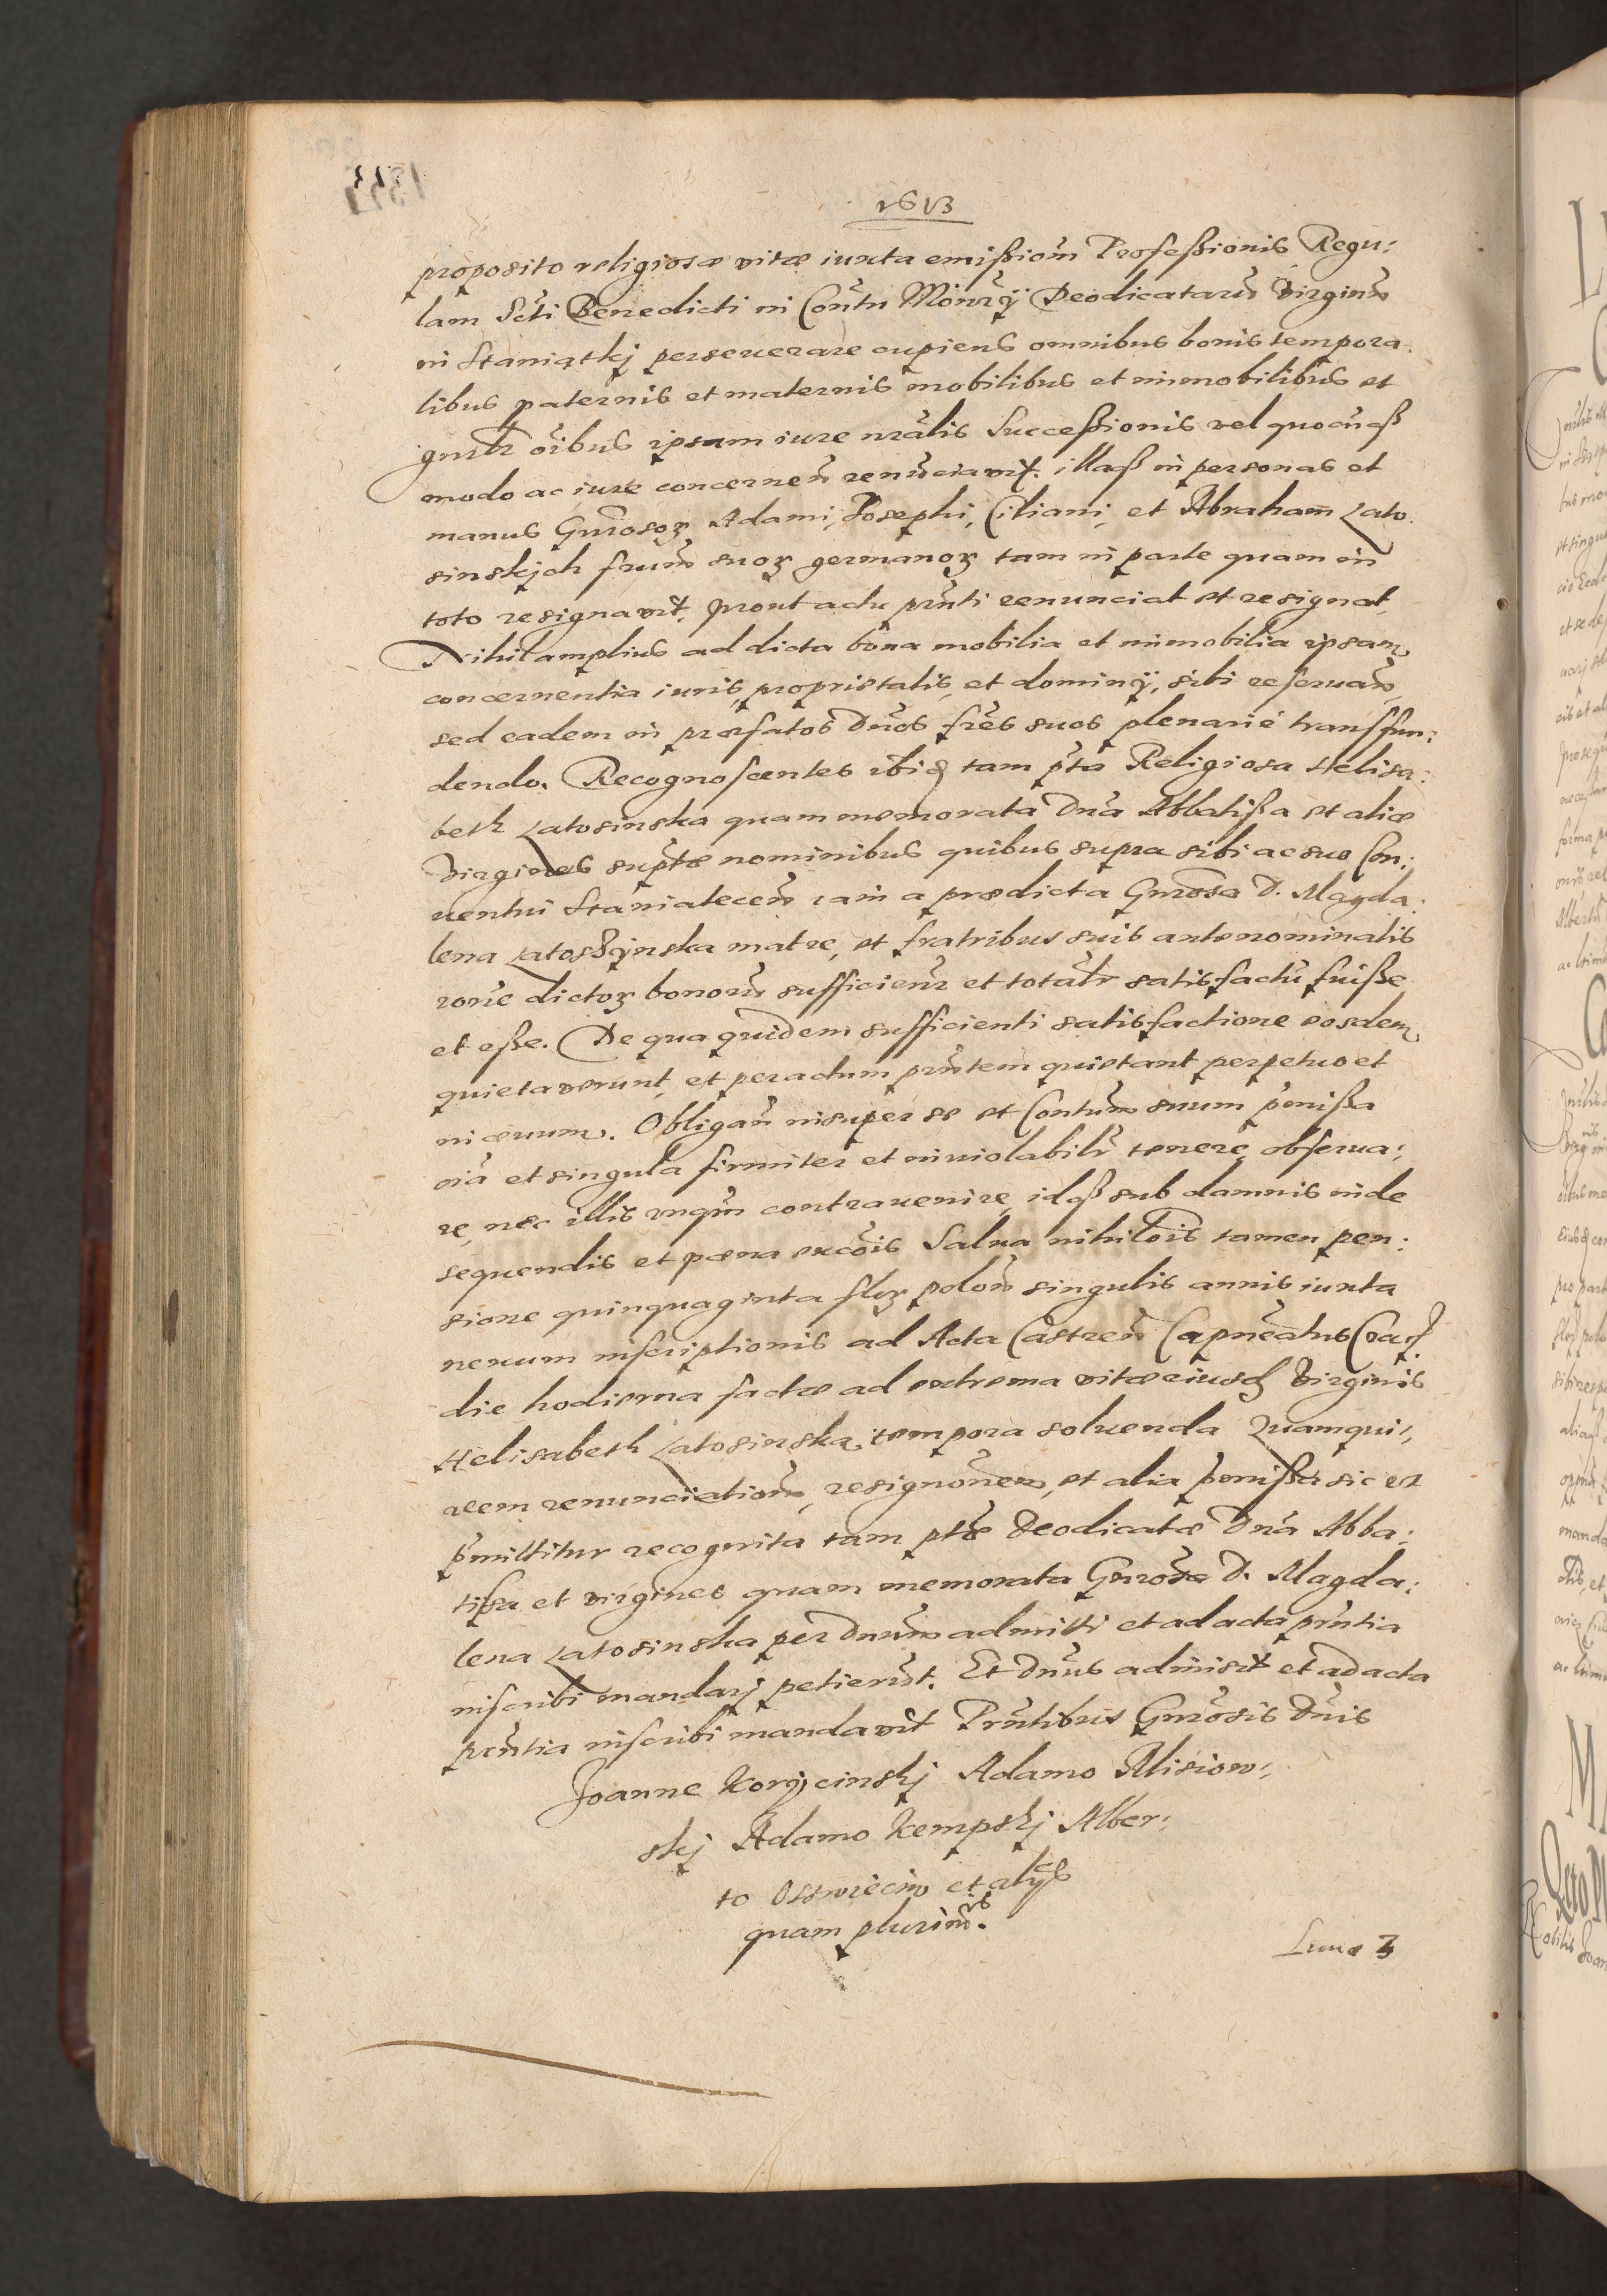 1613
proposito religiosæ vitæ iuxta emißiom̄ Profeßionis Regu:
lam Scti Benedicti in Con̄tu Mon̄rij Deodicatarū Virginū
in Staniątkj perseuerare cupiens omnibus bonis tempora.
libus paternis et maternis mobilibus et immobilibus et
gnr̄lr oībus ipsam iure nrālis Succeßionis vel quocūqȝ
modo ac iure concernen̄ renūciavit. illaqȝ in personas et
manus Gnrosoꝝ Adami, Josephi, Ciliani, et Abraham̄ Lato.
sinskich frūm suoꝝ germanoꝝ tam in parte quam in
toto resignavit, prout actu pr̄nti renunciat et resignat
Nihil amplius ad dicta bona mobilia et immobilia ipsam
concernentia iuris, proprietatis, et dominij, sibi reseruan̄,
sed eadem in præfatos Dn̄os fr̄es suos plenariè transfun:
dendo. Recognoscentes ibidꝫ tam p̄ta Religiosa Helisa:
beth Latosinska quam memorata Dn̄a Abbatißa et aliæ
Virgines sup̄tæ nominibus quibus supra sibi ac suo Con:
uentui Staniatecen̄ iam a prædicta Gnrosa D. Magda:
lena Latoszÿnska matre, et fratribus suis antenominatis
rōne dictoꝝ bonorū sufficienr̄ et totalr̄ satisfactū fuiße
et eße. De qua quidem sufficienti satisfactione eosdem
quietaverunt, et per actum pr̄ntem quietant perpetuo et
in æuum. Obligan̄ insuper se et Contum̄ suum p̄mißa
oīa et singula firmiter et inuiolabilr̄ tenere, obserua:
re, nec illis vnqm̄ contrauenire, idqȝ sub damnis inde
sequendis et pæna excōis Salua nihilōis tamen pen:
sione quinquaginta floꝝ polon̄ singulis annis iuxta
nexum inscriptionis ad Acta Castren̄ Capneātus Crac̄
die hodierna factæ ad extrema vitæ eiusdꝫ Virginis
Helisabeth Latosinska tempora soluenda Quamqui:
dem renunciation̄, resignōnem, et alia p̄mißa sic vt
p̄mittitur recognita tam p̄tæ Deodicatæ Dn̄a Abba:
tißa et virgines quam memorata Gnrosa D. Magda:
lena Latosinska per Dnūm admitti et ad acta pr̄ntia
inscribi mandarj petierūt. Et Dnūs admisit et ad acta
pr̄ntia inscribi mandavit Prn̄tibus Gnrosis Dn̄is
Joanne Korÿcinskj Adamo Misiow:
skj Adamo Kempskj Alber:
to Osswiecim et alijs
quam plurimis.
Lunæ 3